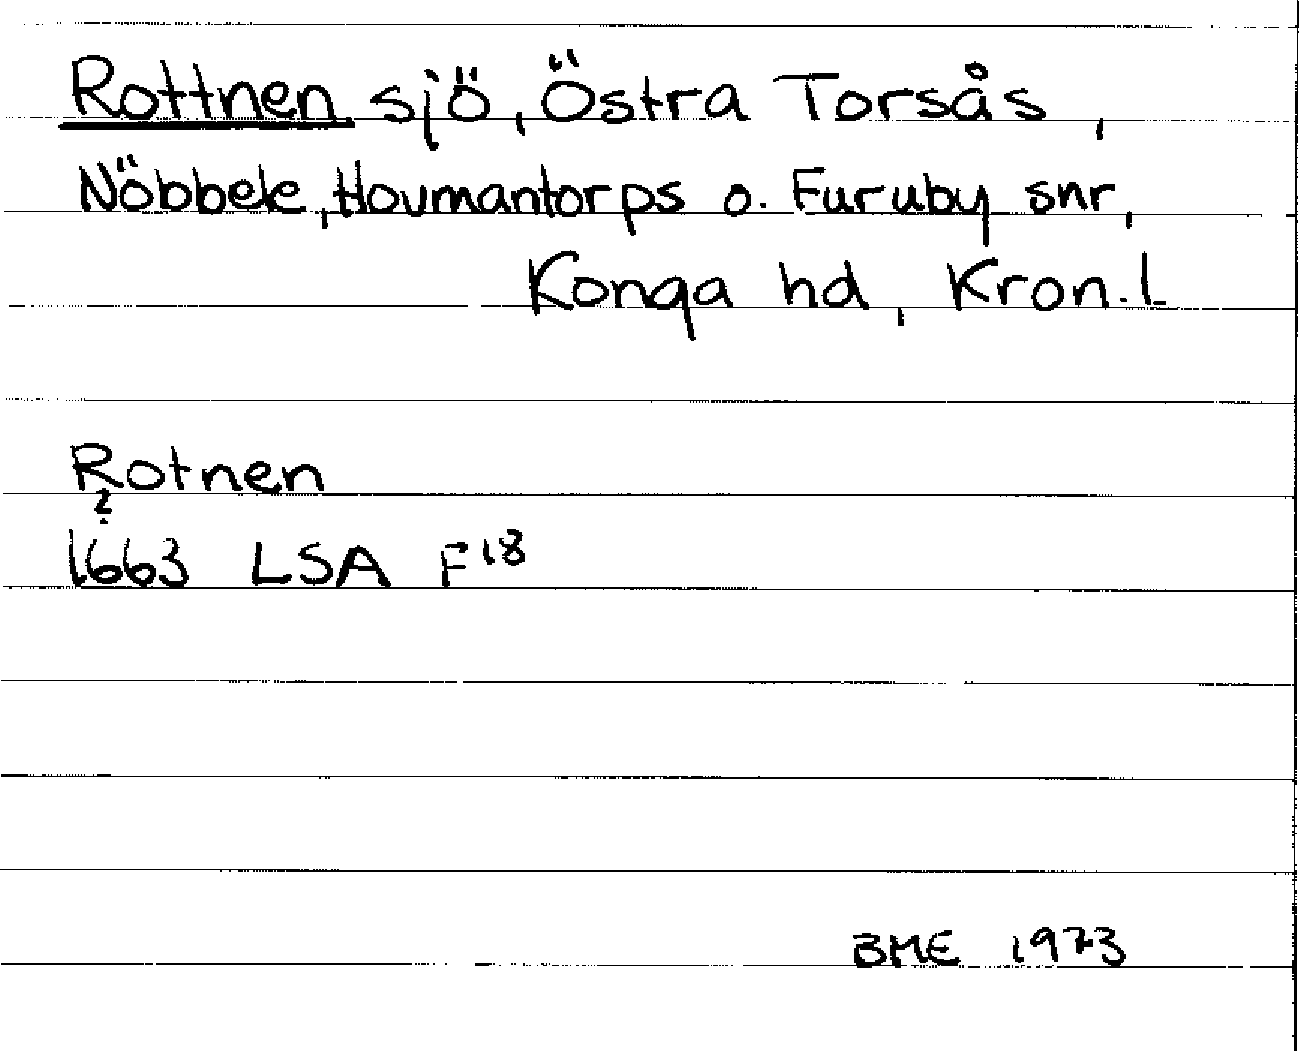 Rottnen sjö, Östra Torsås,
Nöbbele, Hovmantorps o. Furuby snr,
Konga hd, Kron.l.
Rotnen
?
1663 LSA F18
BME 1973